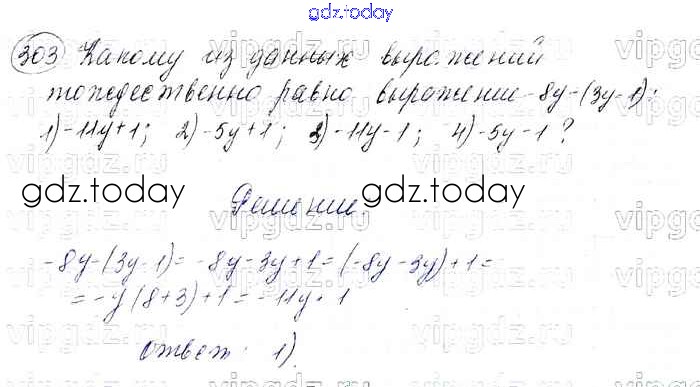 gdz.today
303 Какому из данных выражений
тождественно равно выражение -8y-(3y-1):
1) -11y+1; 2) -5y+1; 3) -11y-1; 4) -5y-1?
gdz.today gdz.today
Решение.
-8y-(3y-1)= -8y-3y+1=(-8y-3y)+1=
=-y(8+3)+1=-11y+1
Ответ: 1).
vipgdz.ru